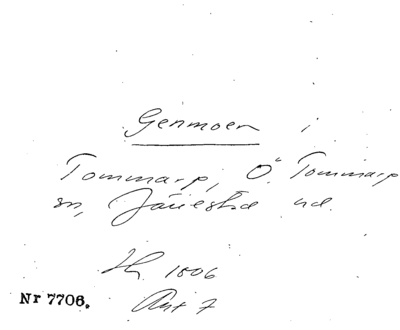 Genmoen i
Tommarp, Ö. Tommarp
sn, Järrestad hd.
1806
Akt 7
Nr 7706.